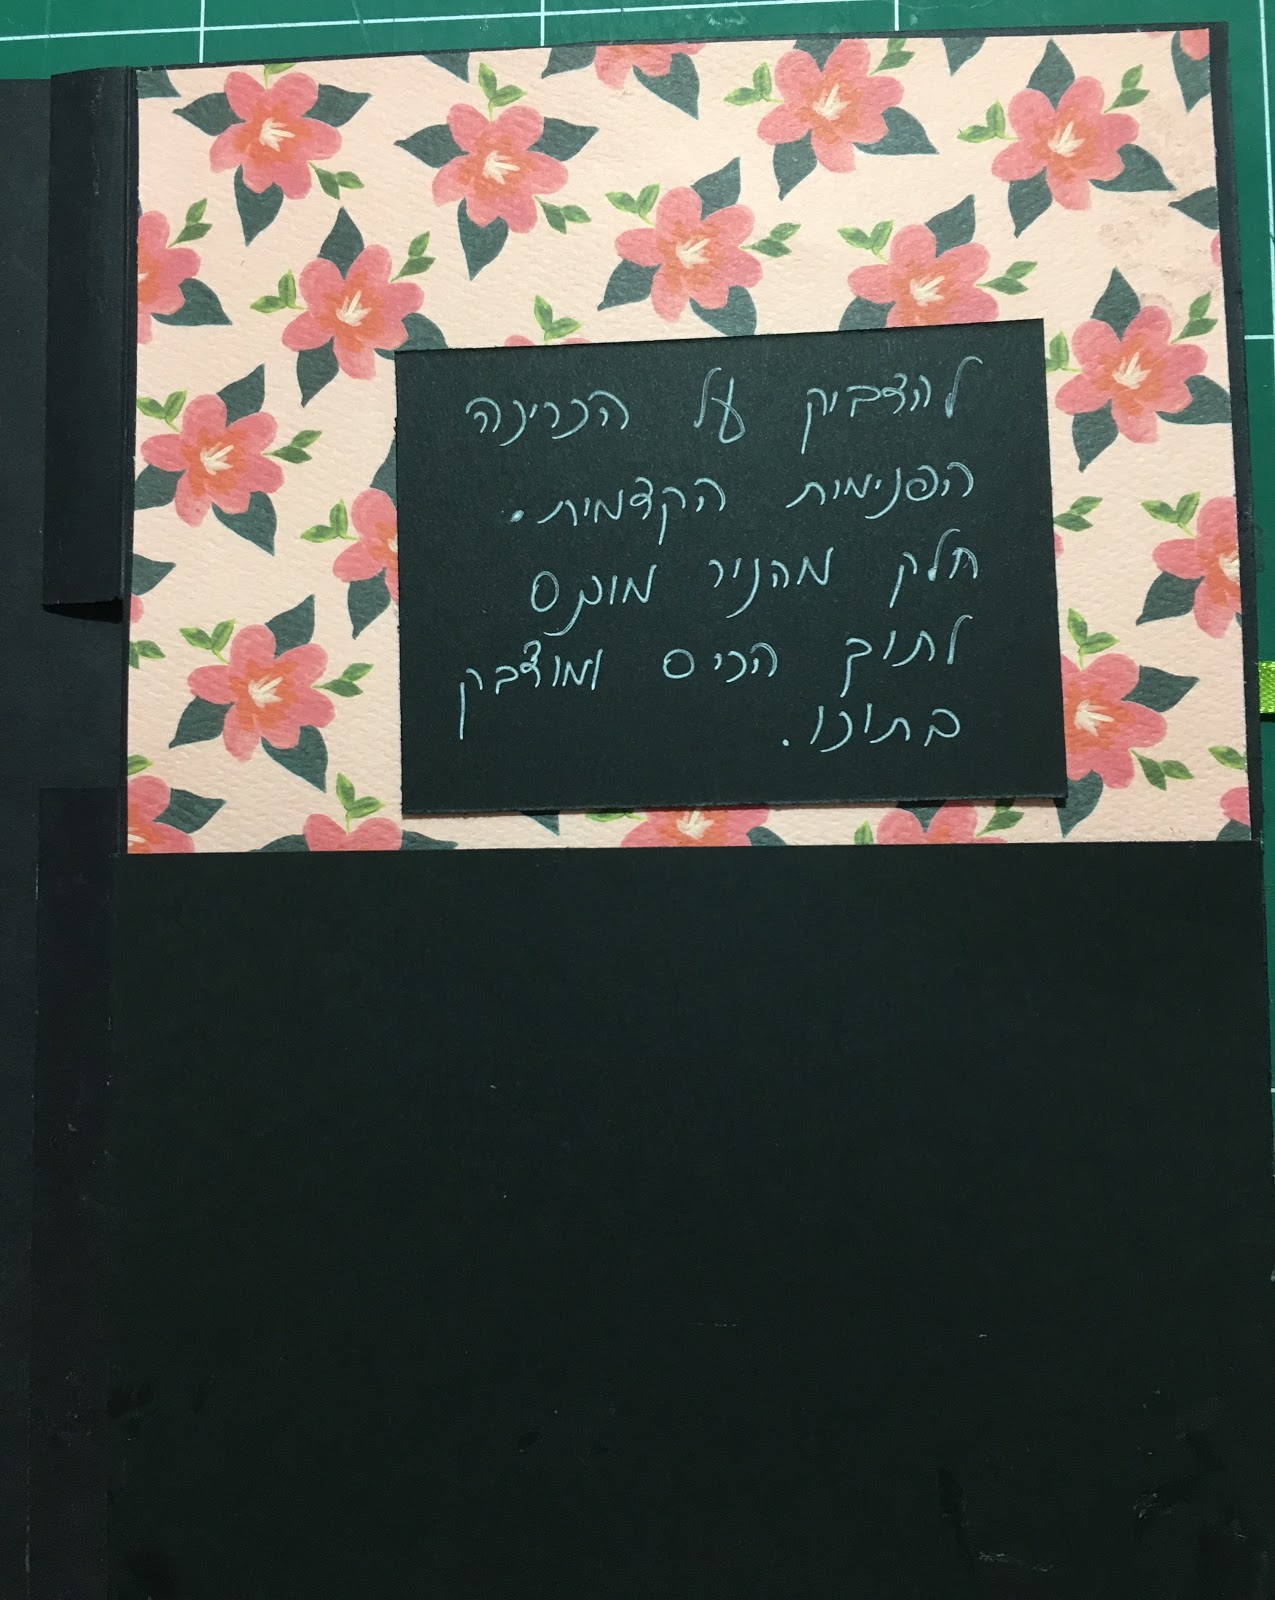 להדביק על הכריכה
הפנימית הקדמית.
חלק מהנייר מוכנס
לתוך הכיס ומודבק
בתוכו.